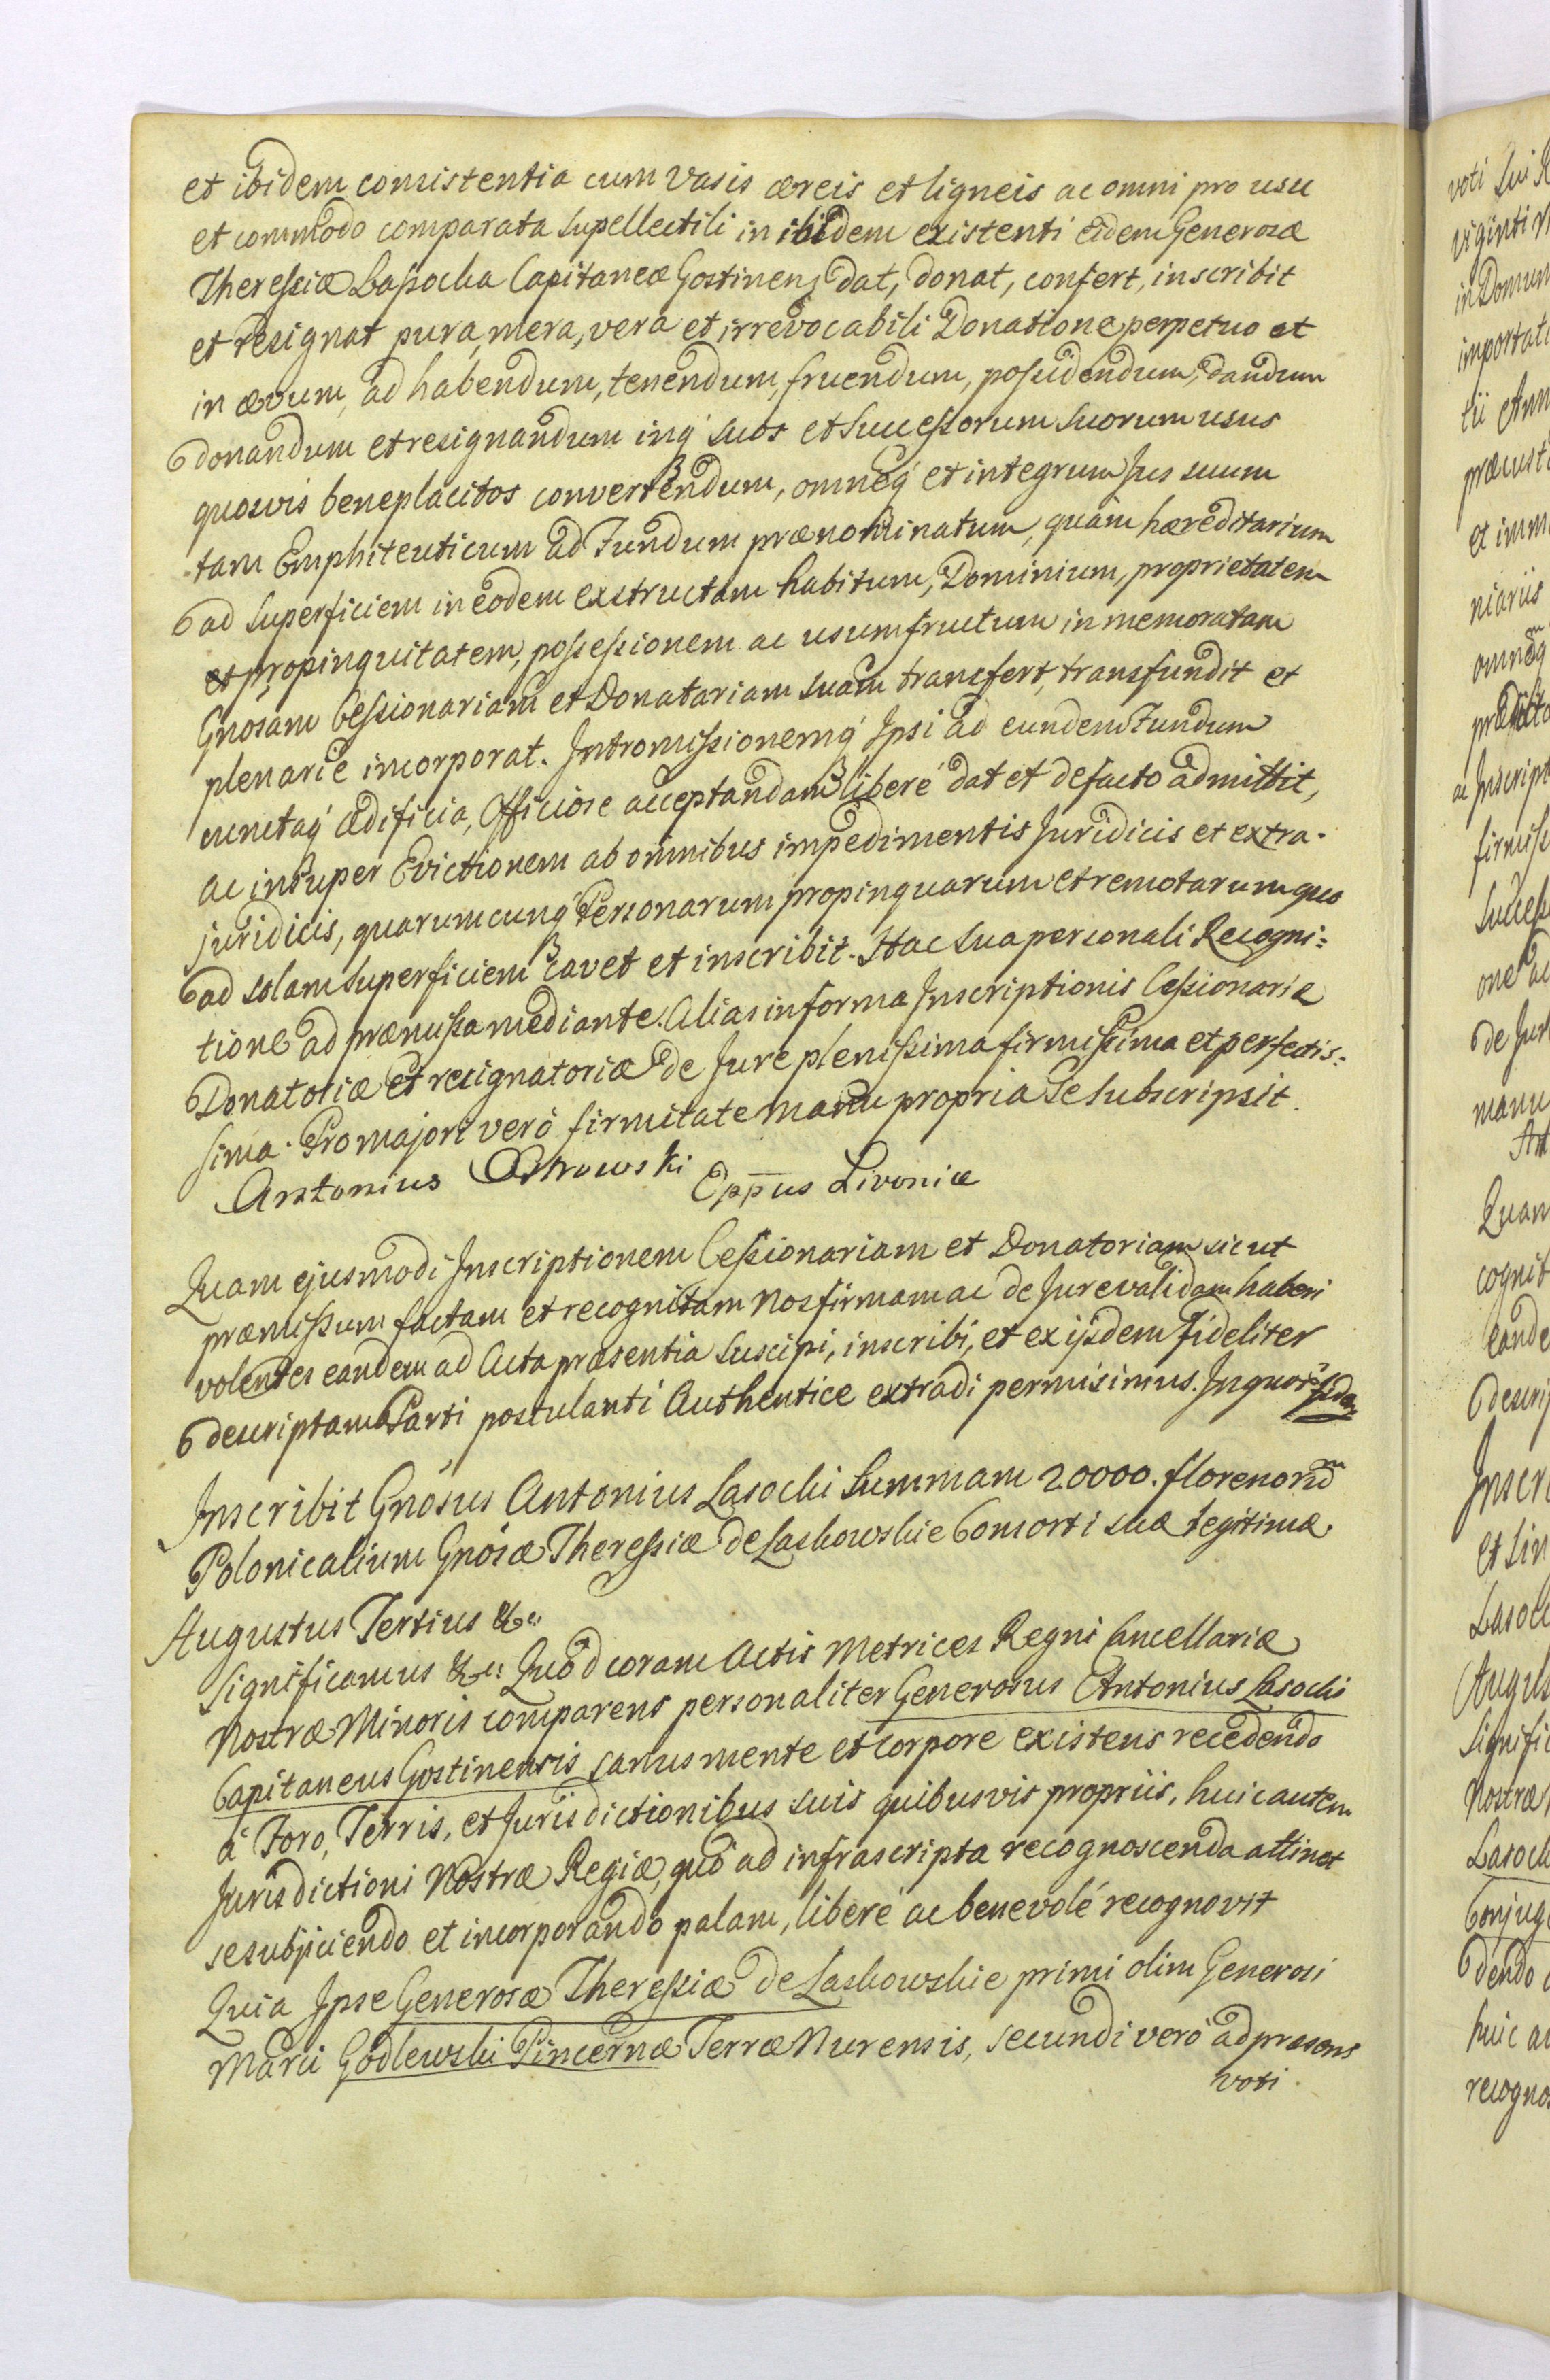 et ibidem consistentia cum vasis æreis et ligneis ac omni pro usu
et commodo comparata supellectili in ibidem existenti eidem Generosæ
Theressiæ Lassocka Capitaneæ Gostinens dat, donat, confert, inscribit
et resignat pura, mera, vera et irrevocabili Donatione perpetuo et
in ævum, ad habendum, tenendum, fruendum, possidendum, dandum
donandum et resignandum inq́ suos et successorum suorum usus
quosvis beneplacitos convertendum, omneq́ et integrum Jus suum
tam Emphiteuticum ad Fundum prænominatum, quam hæreditarium
ad superficiem in eodem exstructam habitum, Dominium, proprietatem
et propinquitatem, possessionem ac usumfructum in memoratam
Gnosam Cessionariam et Donatariam suam transfert, transfundit et
plenarie incorporat. Intromissionemq́ Ipsi ad eundem Fundum
cunctaq́ ædificia, Officiose acceptandam libere dat et de facto admittit,
ac insuper Evictionem ab omnibus impedimentis Juridicis et extra-
juridicis, quarumcunq́ Personarum propinquarum et remotarum quo
ad solam superficiem cavet et inscribit. Hac sua personali Recogni=
tione ad præmissa mediante. Alias in forma Inscriptionis Cessionariæ
Donatoriæ et resignatoriæ de Jure plenissima firmissima et perfectis=
sima. Pro majori verò firmitate manu propria se subscripsit.
Antonius Ostrowski Eppus Livoniæ
Quam ejusmodi Inscriptionem Cessionariam et Donatoriam sicut
præmissum factam et recognitam Nos firmam ac de Jure validam haberi
volentes eandem ad Acta præsentia suscipi, inscribi, et ex ijsdem fideliter
descriptam Parti postulanti Authentice extradi permisimus. In quor fidem
Inscribit Gnosus Antonius Lasocki Summam 20000. florenorum
Polonicalium Gnosæ Theressiæ de Laskowskie Consorti suæ legitimæ.
Augustus Tertius &c:
Significamus &c: Quod coram Actis Metrices Regni Cancellariæ
Nostræ Minoris comparens personaliter Generosus Antonius Lasocki
Capitaneus Gostinensis sanus mente et corpore existens recedendo
à Foro, Terris, et Jurisdictionibus suis quibusvis propriis, huic autem
Jurisdictioni Nostræ Regiæ, quo ad infrascripta recognoscenda attinet
se subjiciendo et incorporando palam, libere ac benevolé recognovit
Quia Ipse Generosæ Theressiæ de Laskowskie primi olim Generosi
Marci Godlewski Pincernæ Terræ Nurensis, secundi verò ad præsens
voti